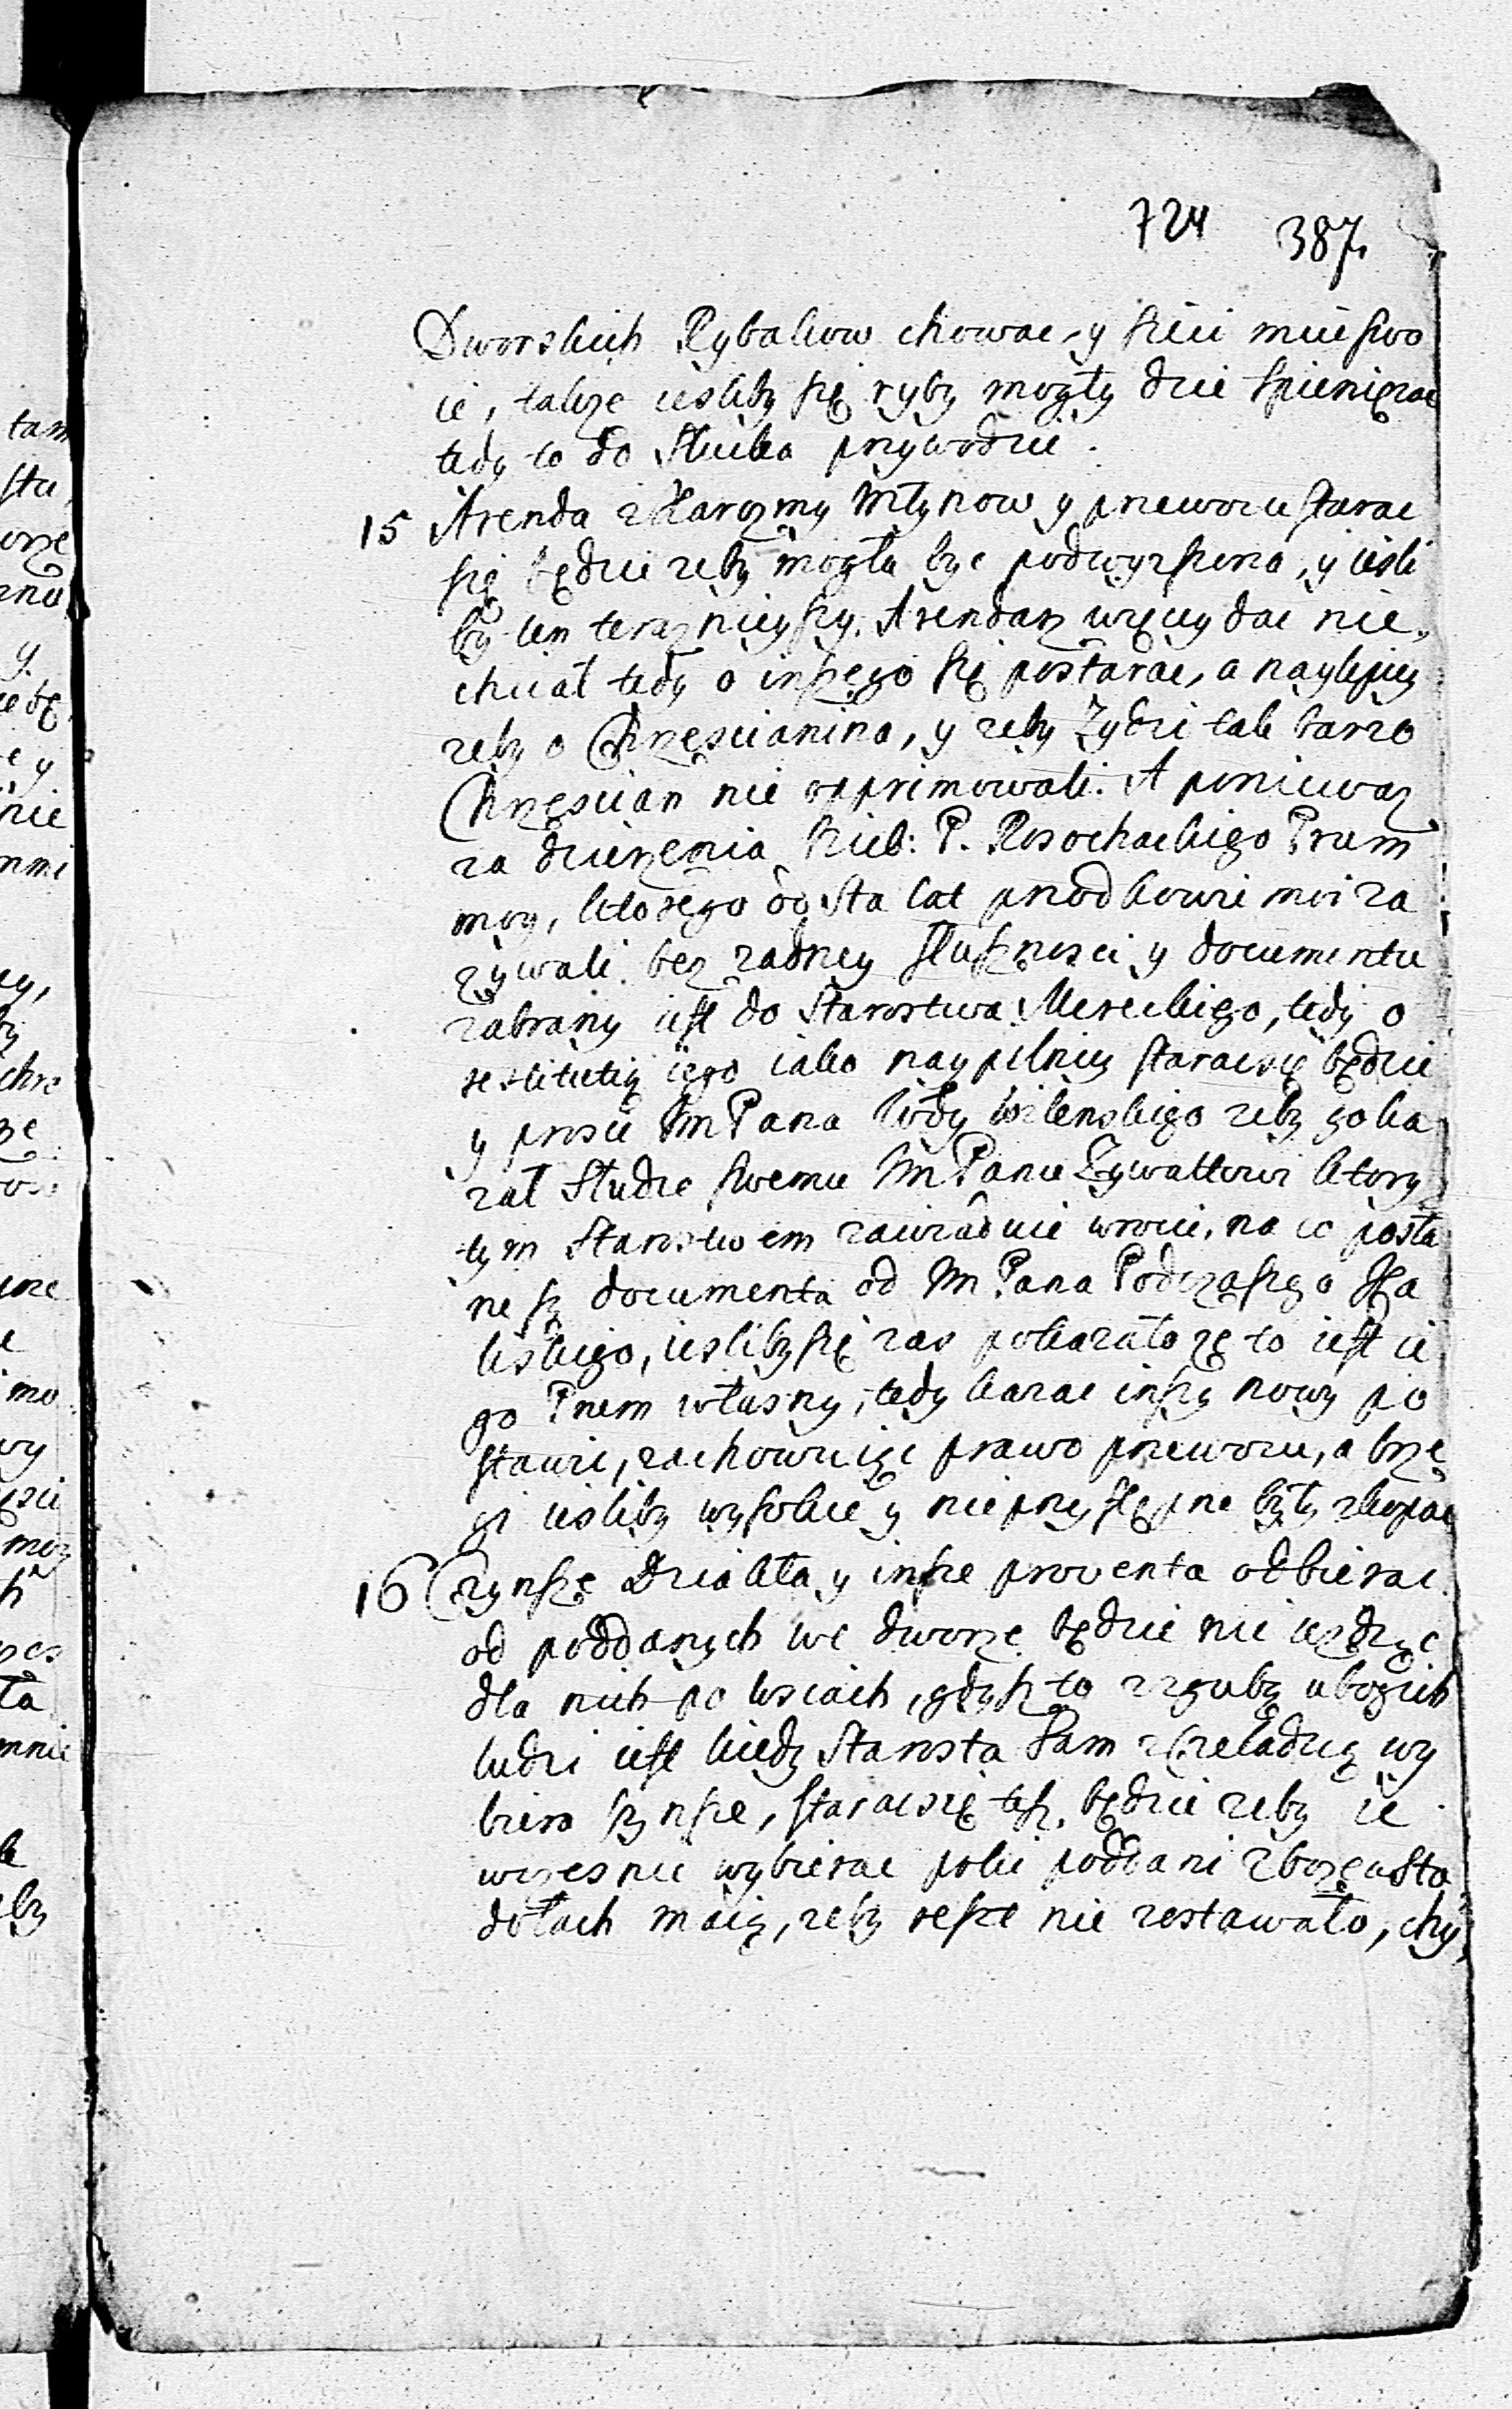 724 387.
Dworskich Rybakow chowac, y sieci miec swo
ie, takze iesliby się ryby mogły dzie spienięzac
tedy to do Słucka przywodzic.
15 Arenda z Karczmy Młynow y przewozu starac
się będzie zeby mogła byc podwyzszona, y iesli
by ten teraznieyszy Arendarz więcy dac nie
chciał tedy o inszego się postarac, a naylepiey
zeby o Chrzescianina, y zeby Zydzi tak barzo
Chrzescian nie opprimowali. A poniewaz
za dzierzenia Nieb: P. Rosochackiego Pram
moy, ktorego od sta lat przodkowie moi za
zywali bez zadney słusznosci y documentu
zabrany iest do Starostwa Mereckiego, tedy o
restitutią iego iako naypilniey starac się będzie
y prosic Im Pana Wdy Wilenskiego zeby go ka
zał Słudze swemu Im Panu Zywaltowi ktory
tym Starostwem zawiaduie wrocic, na co posła
ne są documenta od Im Pana Podczaszego Ka
liskiego, iesliby się zas pokazało ze to iest ie
go Prem własny, tedy kazac inszy nowy po
stawic, zachowuiąc prawo przewozu, a brze
gi iesliby wysokie y nieprzystępne były zkopac
16 Czynsze Dziakła y insze proventa odbierac
od poddanych we dworze będzie nie iezdząc
dla nich po wsiach, gdysz to z zgubą ubogich
ludzi iest kiedy Starosta sam z czeladzią wy
biera czynsze, starac się tesz będzie zeby ie
wczesnie wybierac poki poddani zboze w Sto
dołach maią, zeby reszt nie zostawało, chy